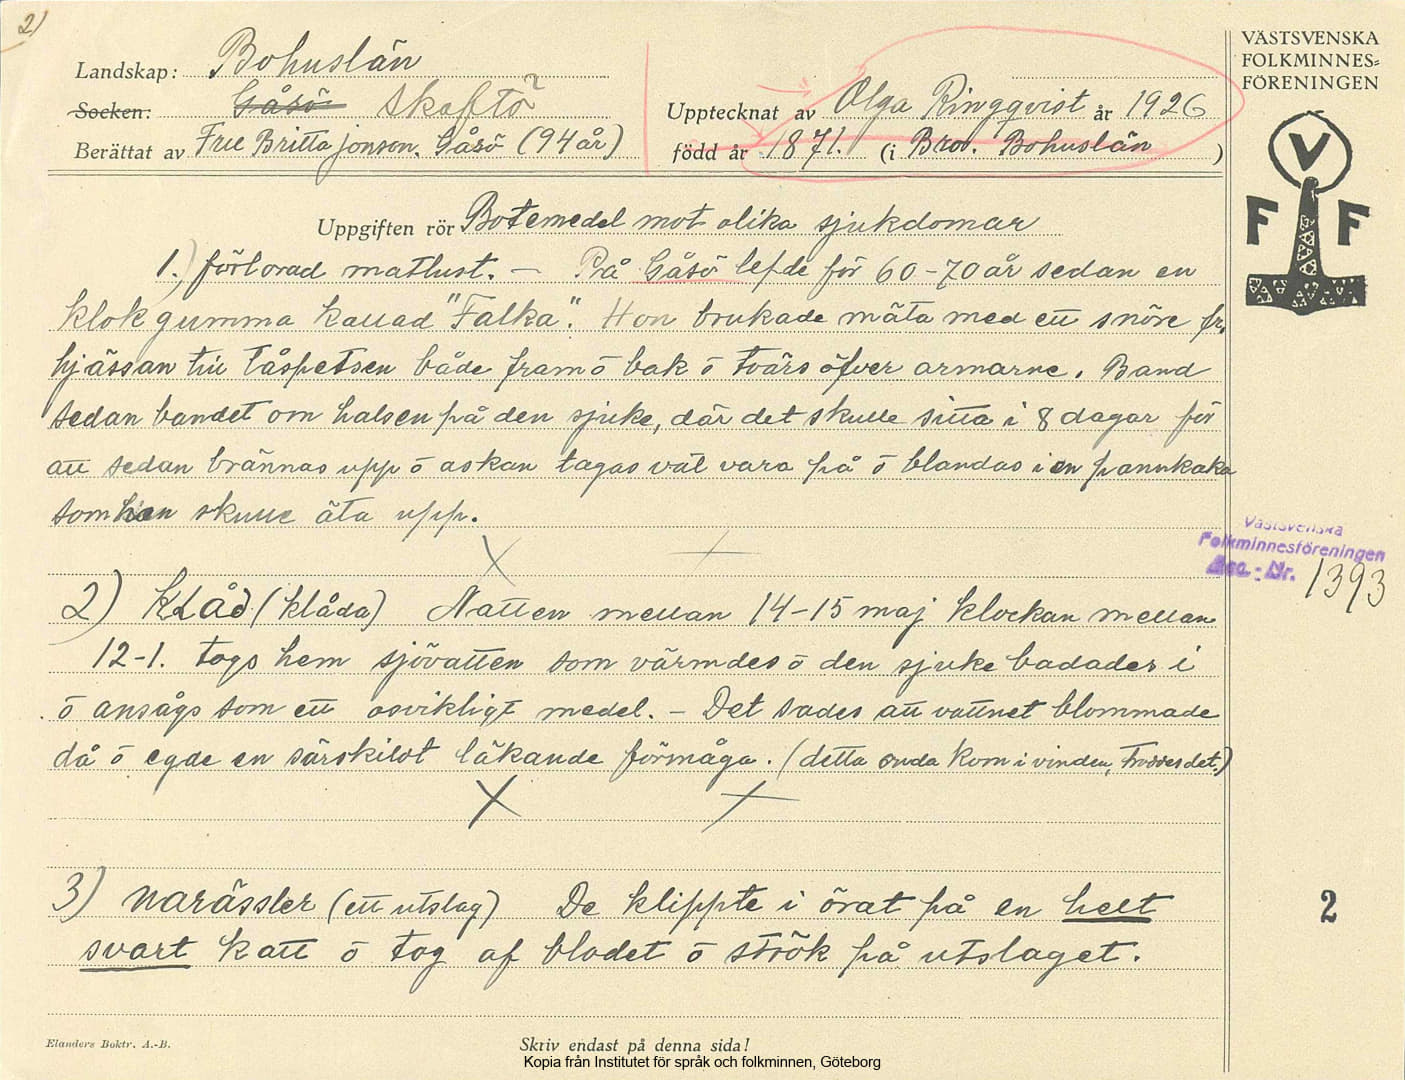 2)
VÄSTSVENSKA
FOLKMINNES=
FÖRENINGEN
V
F F
Landskap: Bohuslän
Socken: Gåsö Skaftö?
Berättat av Fru Britta Jonson. Gåsö (94 år)
Upptecknat av Olga Ringqvist år 1926
född år 1871. (i Bro. Bohuslän )
Uppgiften rör Botemedel mot olika sjukdomar
1.) förlorad matlust. — På Gåsö lefde för 60-70 år sedan en
klok gumma kallad "Falka". Hon brukade mäta med ett snöre fr.
hjässan till tåspetsen både fram ö bak ö tvärs öfver armarne. Band
sedan bandet om halsen på den sjuke, där det skulle sitta i 8 dagar för
att sedan brännas upp ö askan tagas väl vara på ö blandas i en pannkaka
som han skulle äta upp.
Västsvenska
Folkminnesföreningen
Acc.-Nr. 1393
2) KLÅD (klåda) Natten mellan 14-15 maj klockan mellan
12-1. togs hem sjövatten som värmdes ö den sjuke badades i
ö ansågs som ett osvikligt medel. – Det sades att vattnet blommade
då ö egde en särskildt läkande förmåga. (detta onda kom i vinden, troddes det.)
3) Narässler (ett utslag) De klippte i örat på en helt
svart katt ö tog af blodet ö strök på utslaget.
2
Elanders Boktr. A.-B.
Skriv endast på denna sida!
Kopia från Institutet för språk och folkminnen, Göteborg